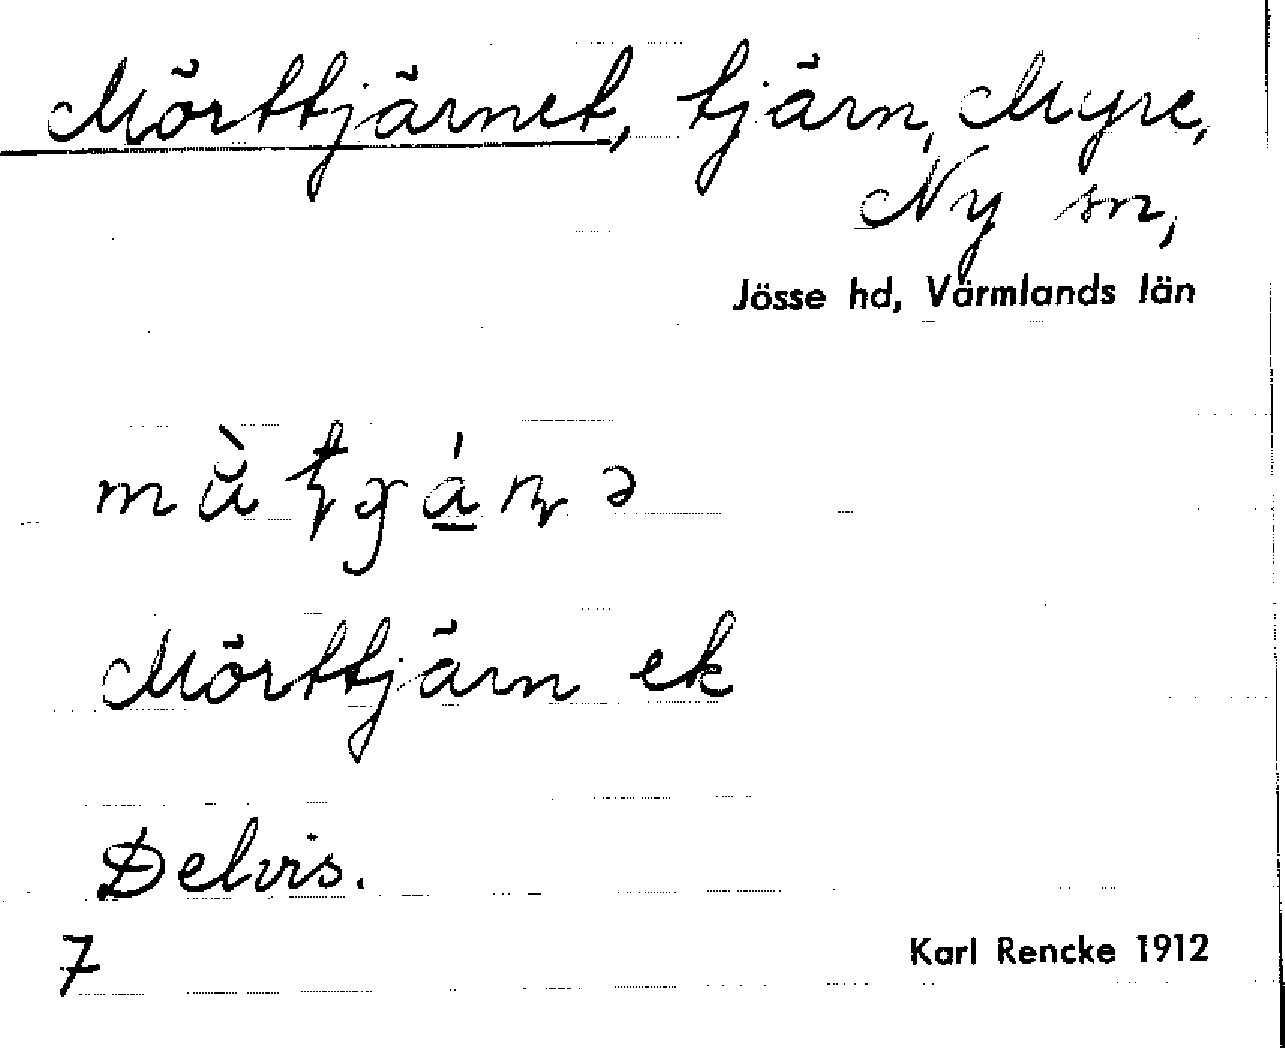 Mörttjärnet, tjärn, Myre,
Ny sn,
Jösse hd, Värmlands län
Mörttjärn ek
Delvis.
7
Karl Rencke 1912